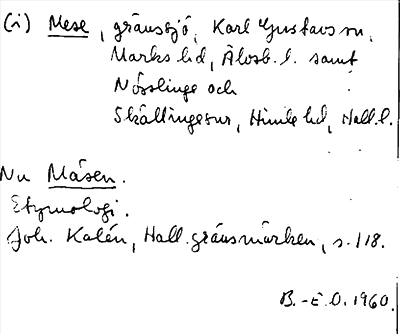 (i) Mese, gränssjö, Karl Gustavs sn,
Marks hd, Älvsb. l. samt
Nösslinge och
Skällinge snr, Himle hd, Hall. l.
Nu Mäsen.
Etymologi.
Joh. Kalén, Hall. gränsmärken, s. 118.
B.-E. O. 1960.